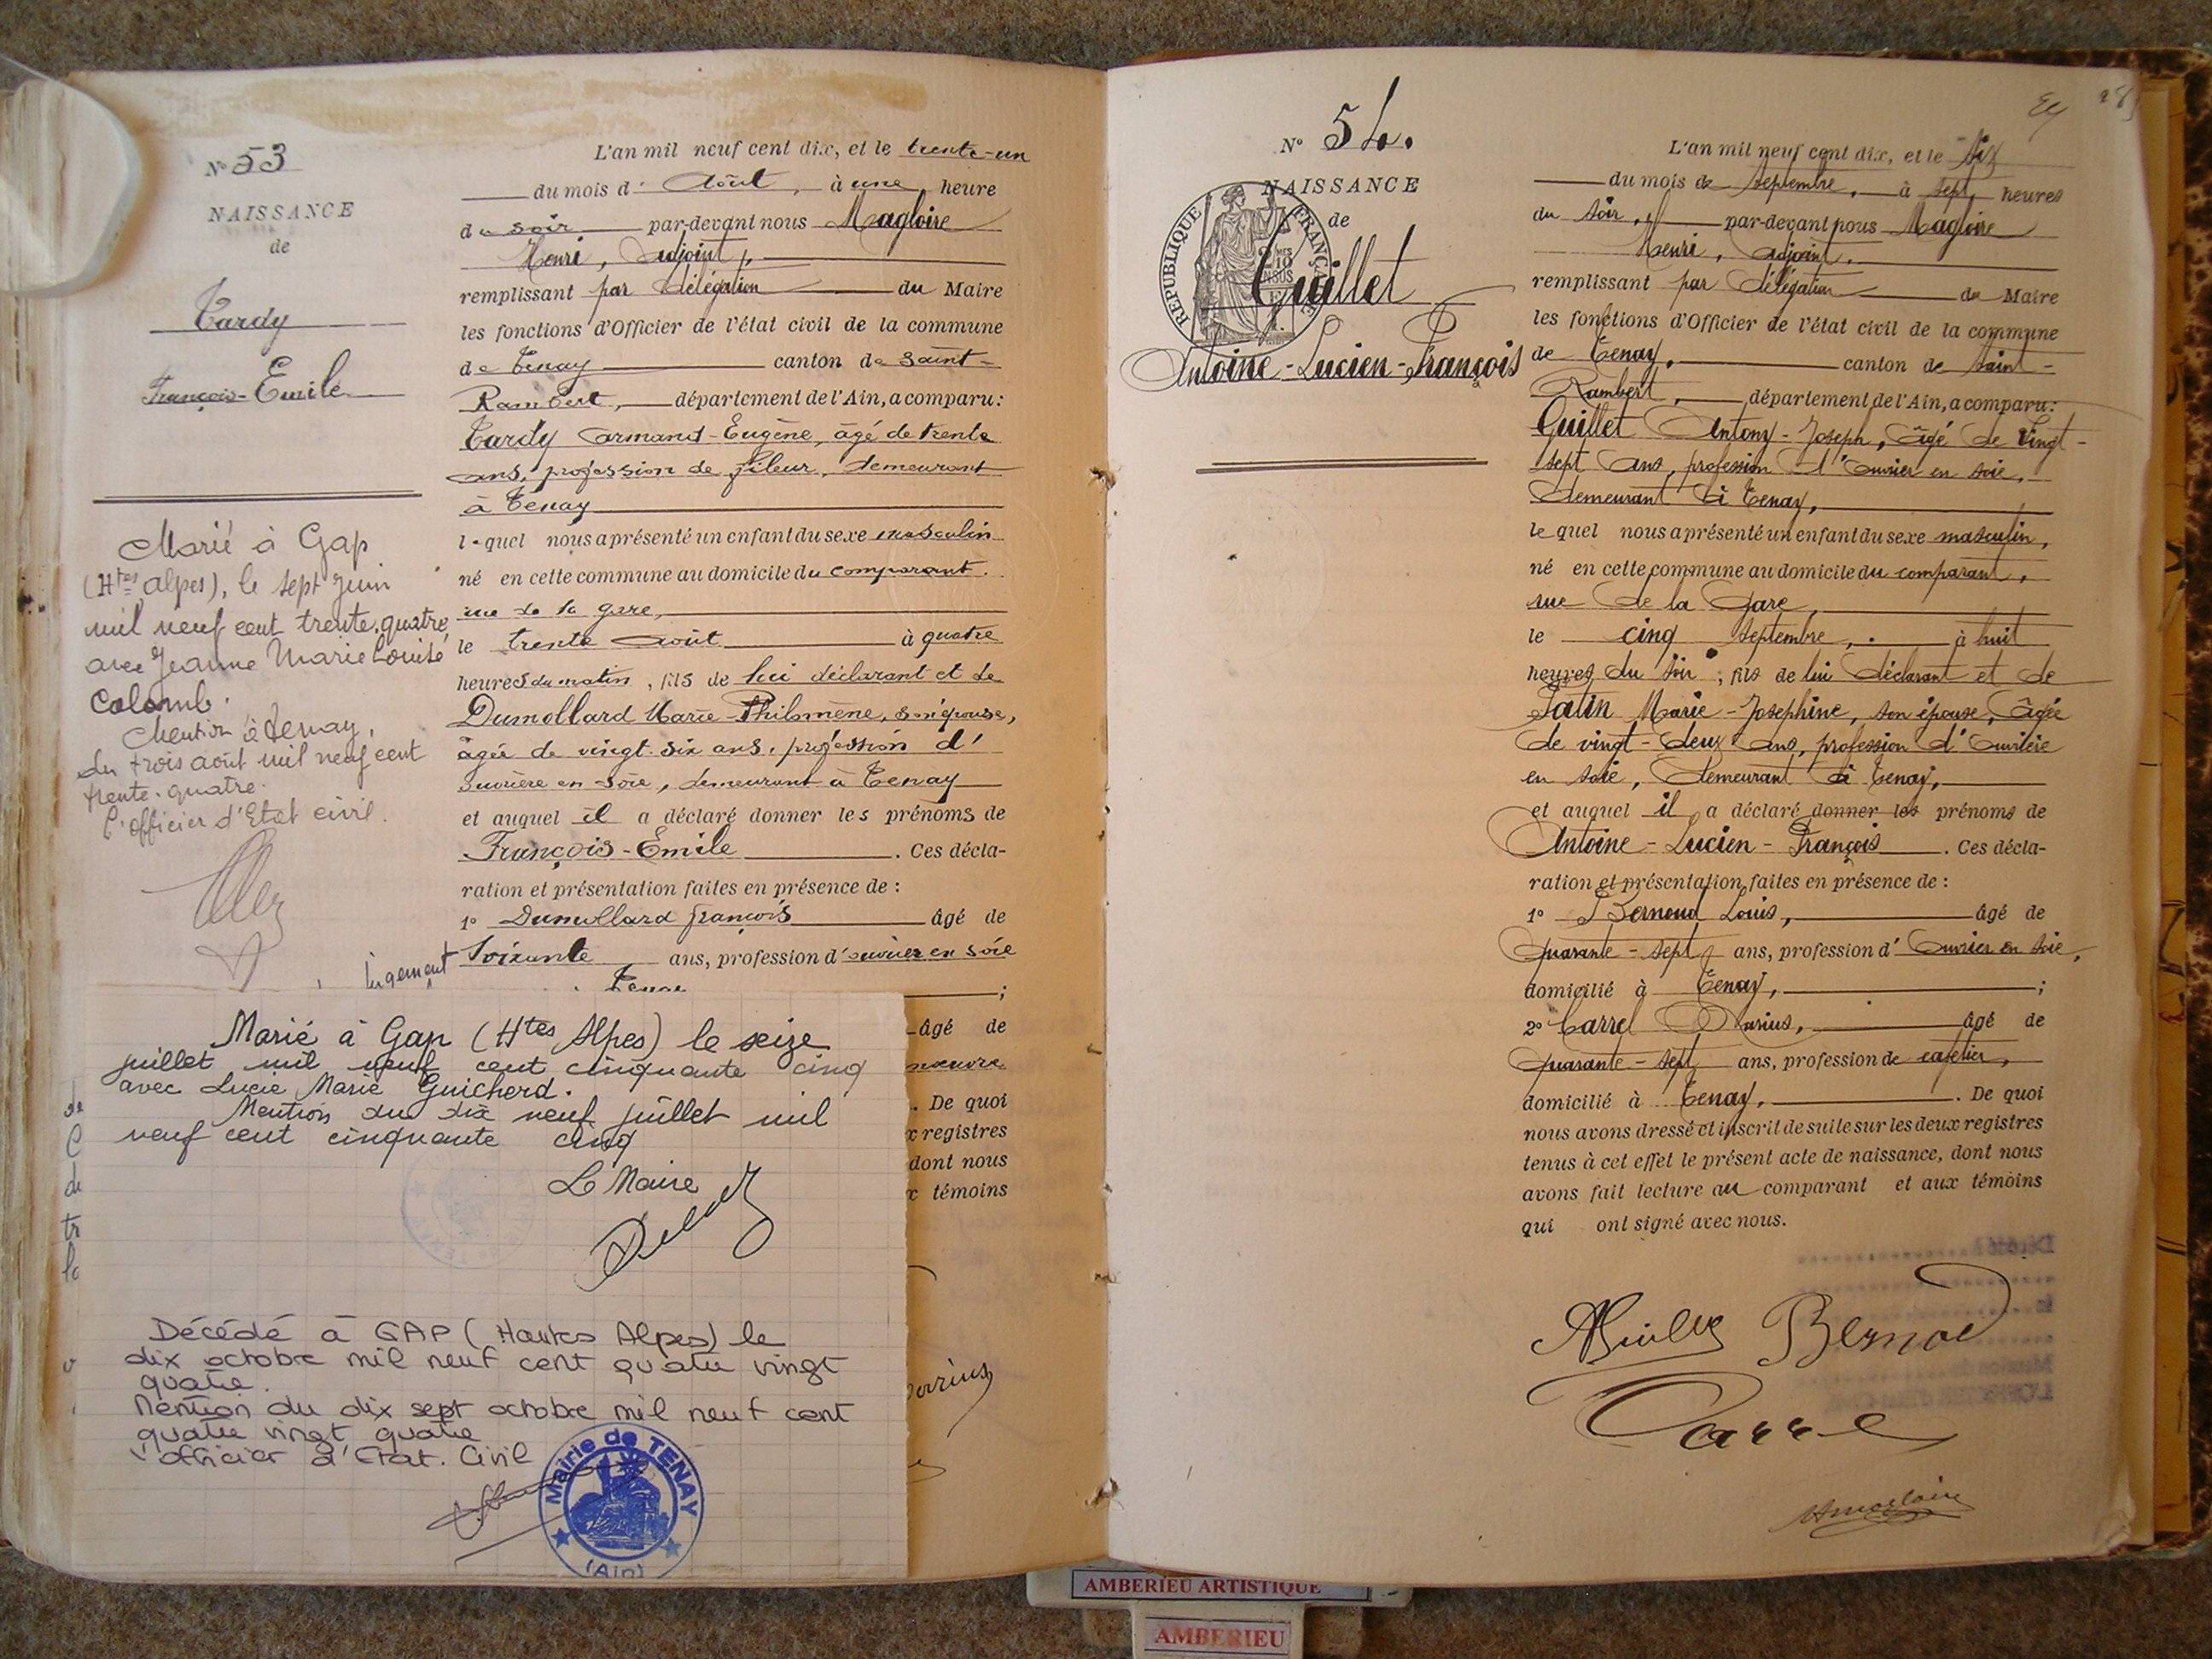 N° 53
NAISSANCE
de
Tardy
François-Emile
Marié à Gap
(Htes alpes), le sept juin
mil neuf cent trente-quatre
avec Jeanne Marie Louise
Colomb.
Mention à Tenay,
du trois août mil neuf cent
trente-quatre.
L'officier d'Etat civil.
L'an mil neuf cent dix, et le trente-un
du mois d' Août, à une heure
du soir par-devant nous Magloire
Henri, Adjoint,
remplissant par délégation du Maire
les fonctions d'Officier de l'état civil de la commune
de Tenay canton de Saint-
Rambert, département de l'Ain, a comparu:
Tardy Armand-Eugène, âgé de trente
ans, profession de fileur, demeurant
à Tenay
lequel nous a présenté un enfant du sexe masculin
né en cette commune au domicile du comparant.
rue de la gare,
le trente août à quatre
heures du matin, fils de lui déclarant et de
Dumollard Marie-Philomène, son épouse,
âgée de vingt-six ans, profession d'
ouvrière en soie, demeurant à Tenay
et auquel il a déclaré donner les prénoms de
François-Emile. Ces décla-
ration et présentation faites en présence de :
1° Dumollard françois âgé de
Soixante ans, profession d'ouvrier en soie
Tenay ;
âgé de
. De quoi
x registres
dont nous
x témoins
Marié à Gap (Htes Alpes) le seize
juillet mil neuf cent cinquante cinq
avec Lucie Marie Guicherd.
Mention du dix neuf juillet mil
neuf cent cinquante cinq
Le Maire
Décédé à GAP (Hautes Alpes) le
dix octobre mil neuf cent quatre vingt
quatre.
Mention du dix sept octobre mil neuf cent
quatre vingt quatre
L'officier d'Etat. Civil
Mairie de TENAY
(Ain)
N° 54.
NAISSANCE
de
Guillet
Antoine-Lucien-François
RÉPUBLIQUE FRANÇAISE
L'an mil neuf cent dix, et le six
du mois de Septembre, à sept heures
du soir, par-devant nous Magloire
Henri, Adjoint,
remplissant par délégation du Maire
les fonctions d'Officier de l'état civil de la commune
de Tenay, canton de Saint-
Rambert, département de l'Ain, a comparu:
Guillet Antony-Joseph, âgé de Vingt-
sept ans, profession d'Ouvrier en soie,
demeurant à Tenay,
lequel nous a présenté un enfant du sexe masculin,
né en cette commune au domicile du comparant,
rue de la Gare,
le cinq Septembre, à huit
heures du soir ; fils de lui déclarant et de
Patin Marie-Joséphine, son épouse, âgée
de vingt-deux ans, profession d'Ouvrière
en soie, demeurant à Tenay,
et auquel il a déclaré donner les prénoms de
Antoine-Lucien-François. Ces décla-
ration et présentation faites en présence de :
1° Bernoud Louis, âgé de
quarante-sept ans, profession d' Ouvrier en soie,
domicilié à Tenay, ;
2° Carrel Marius, âgé de
quarante-sept ans, profession de cafetier,
domicilié à Tenay, . De quoi
nous avons dressé et inscrit de suite sur les deux registres
tenus à cet effet le présent acte de naissance, dont nous
avons fait lecture au comparant et aux témoins
qui ont signé avec nous.
AMBERIEU ARTISTIQUE
AMBERIEU